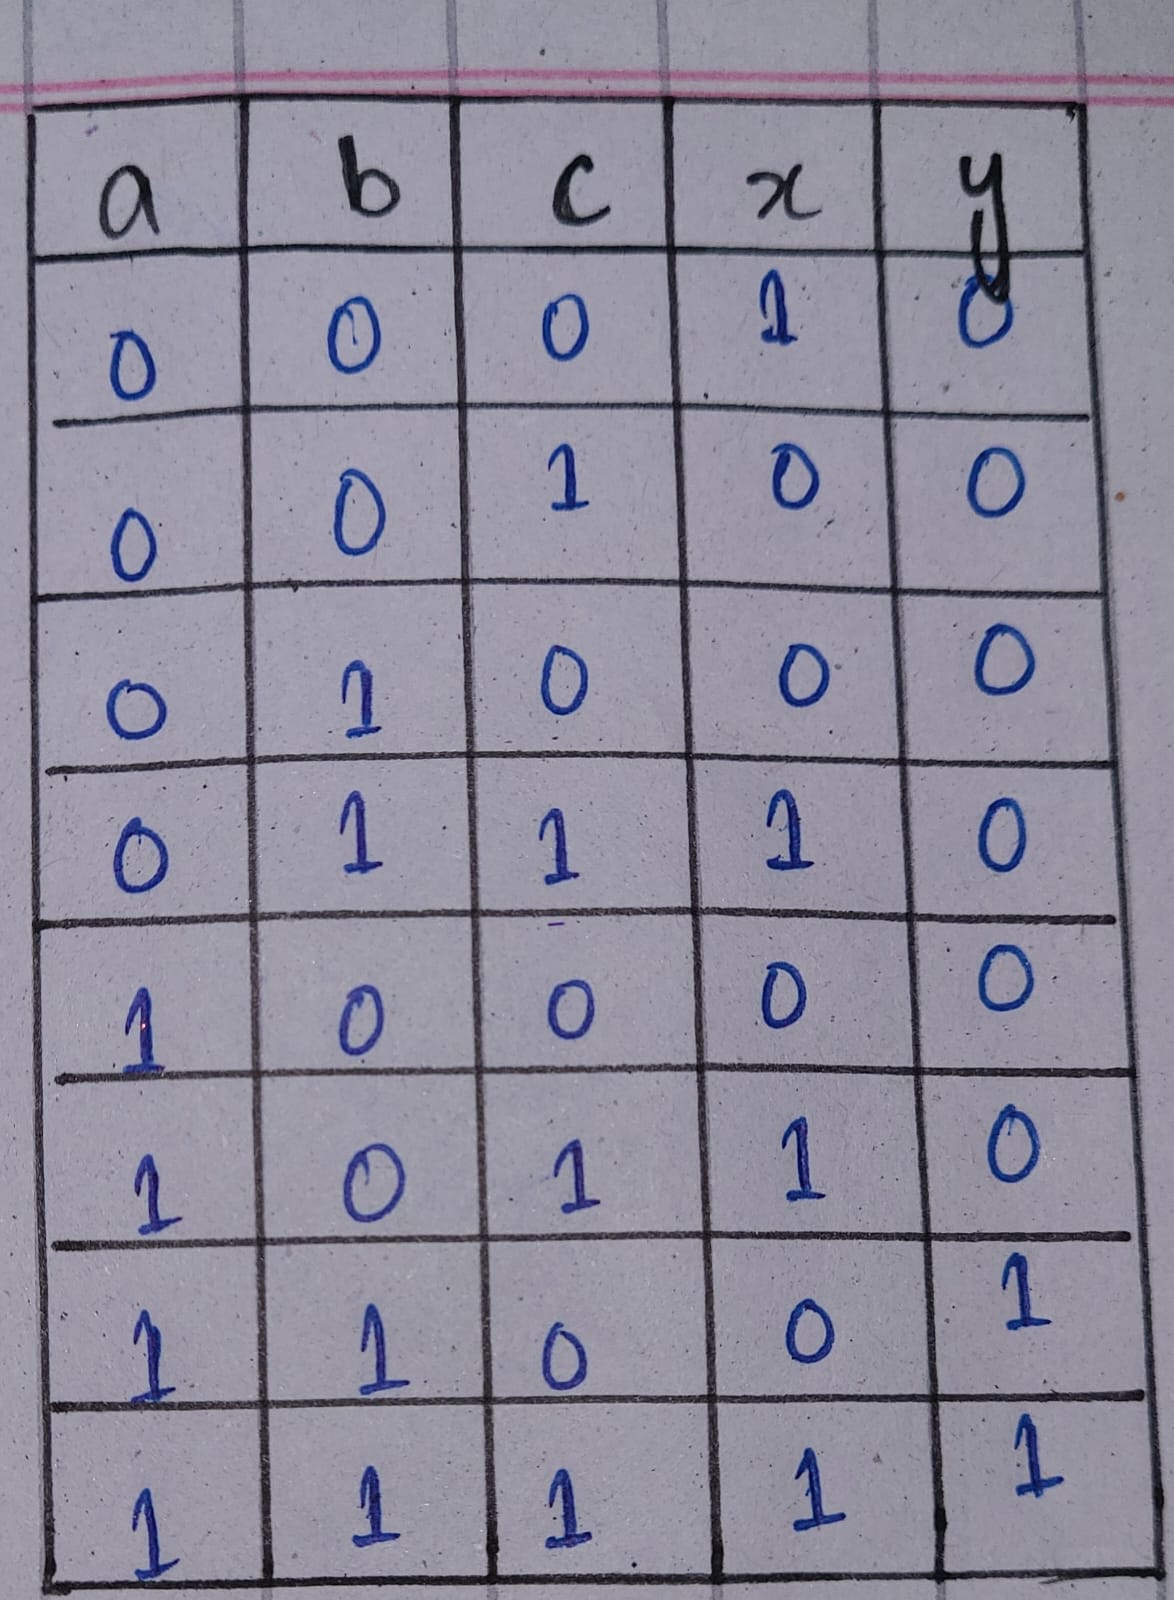 a b c x y
0 0 0 1 0
0 0 1 0 0
0 1 0 0 0
0 1 1 1 0
1 0 0 0 0
1 0 1 1 0
1 1 0 0 1
1 1 1 1 1